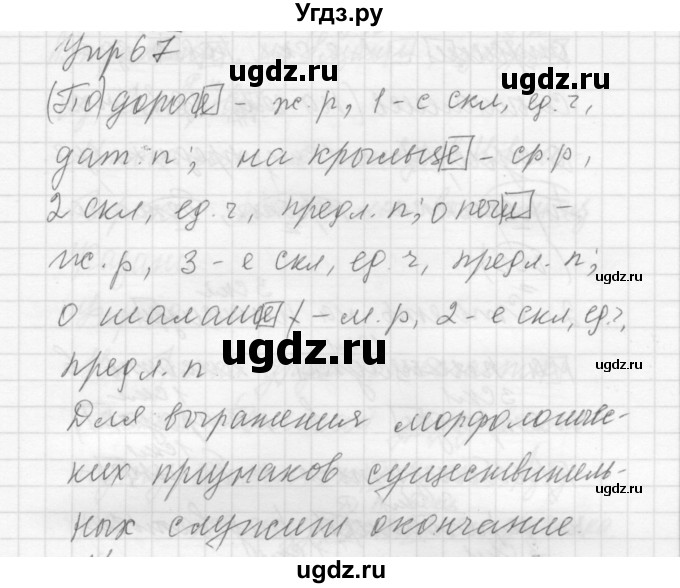 Угдз.ру
Упр 67
(По) дороге - ж.р, 1-е скл, ед.ч,
дат. п; на крыльце - ср.р,
2 скл, ед.ч, предл. п; о печи -
ж.р, 3-е скл, ед.ч, предл. п;
о шалаше - м.р, 2-е скл, ед.ч,
предл. п
Для выражения морфологичес-
ких признаков существитель-
ных служит окончание.
ugdz.ru
ugdz.ru
ugdz.ru
ugdz.ru
ugdz.ru
ugdz.ru
ugdz.ru
ugdz.ru